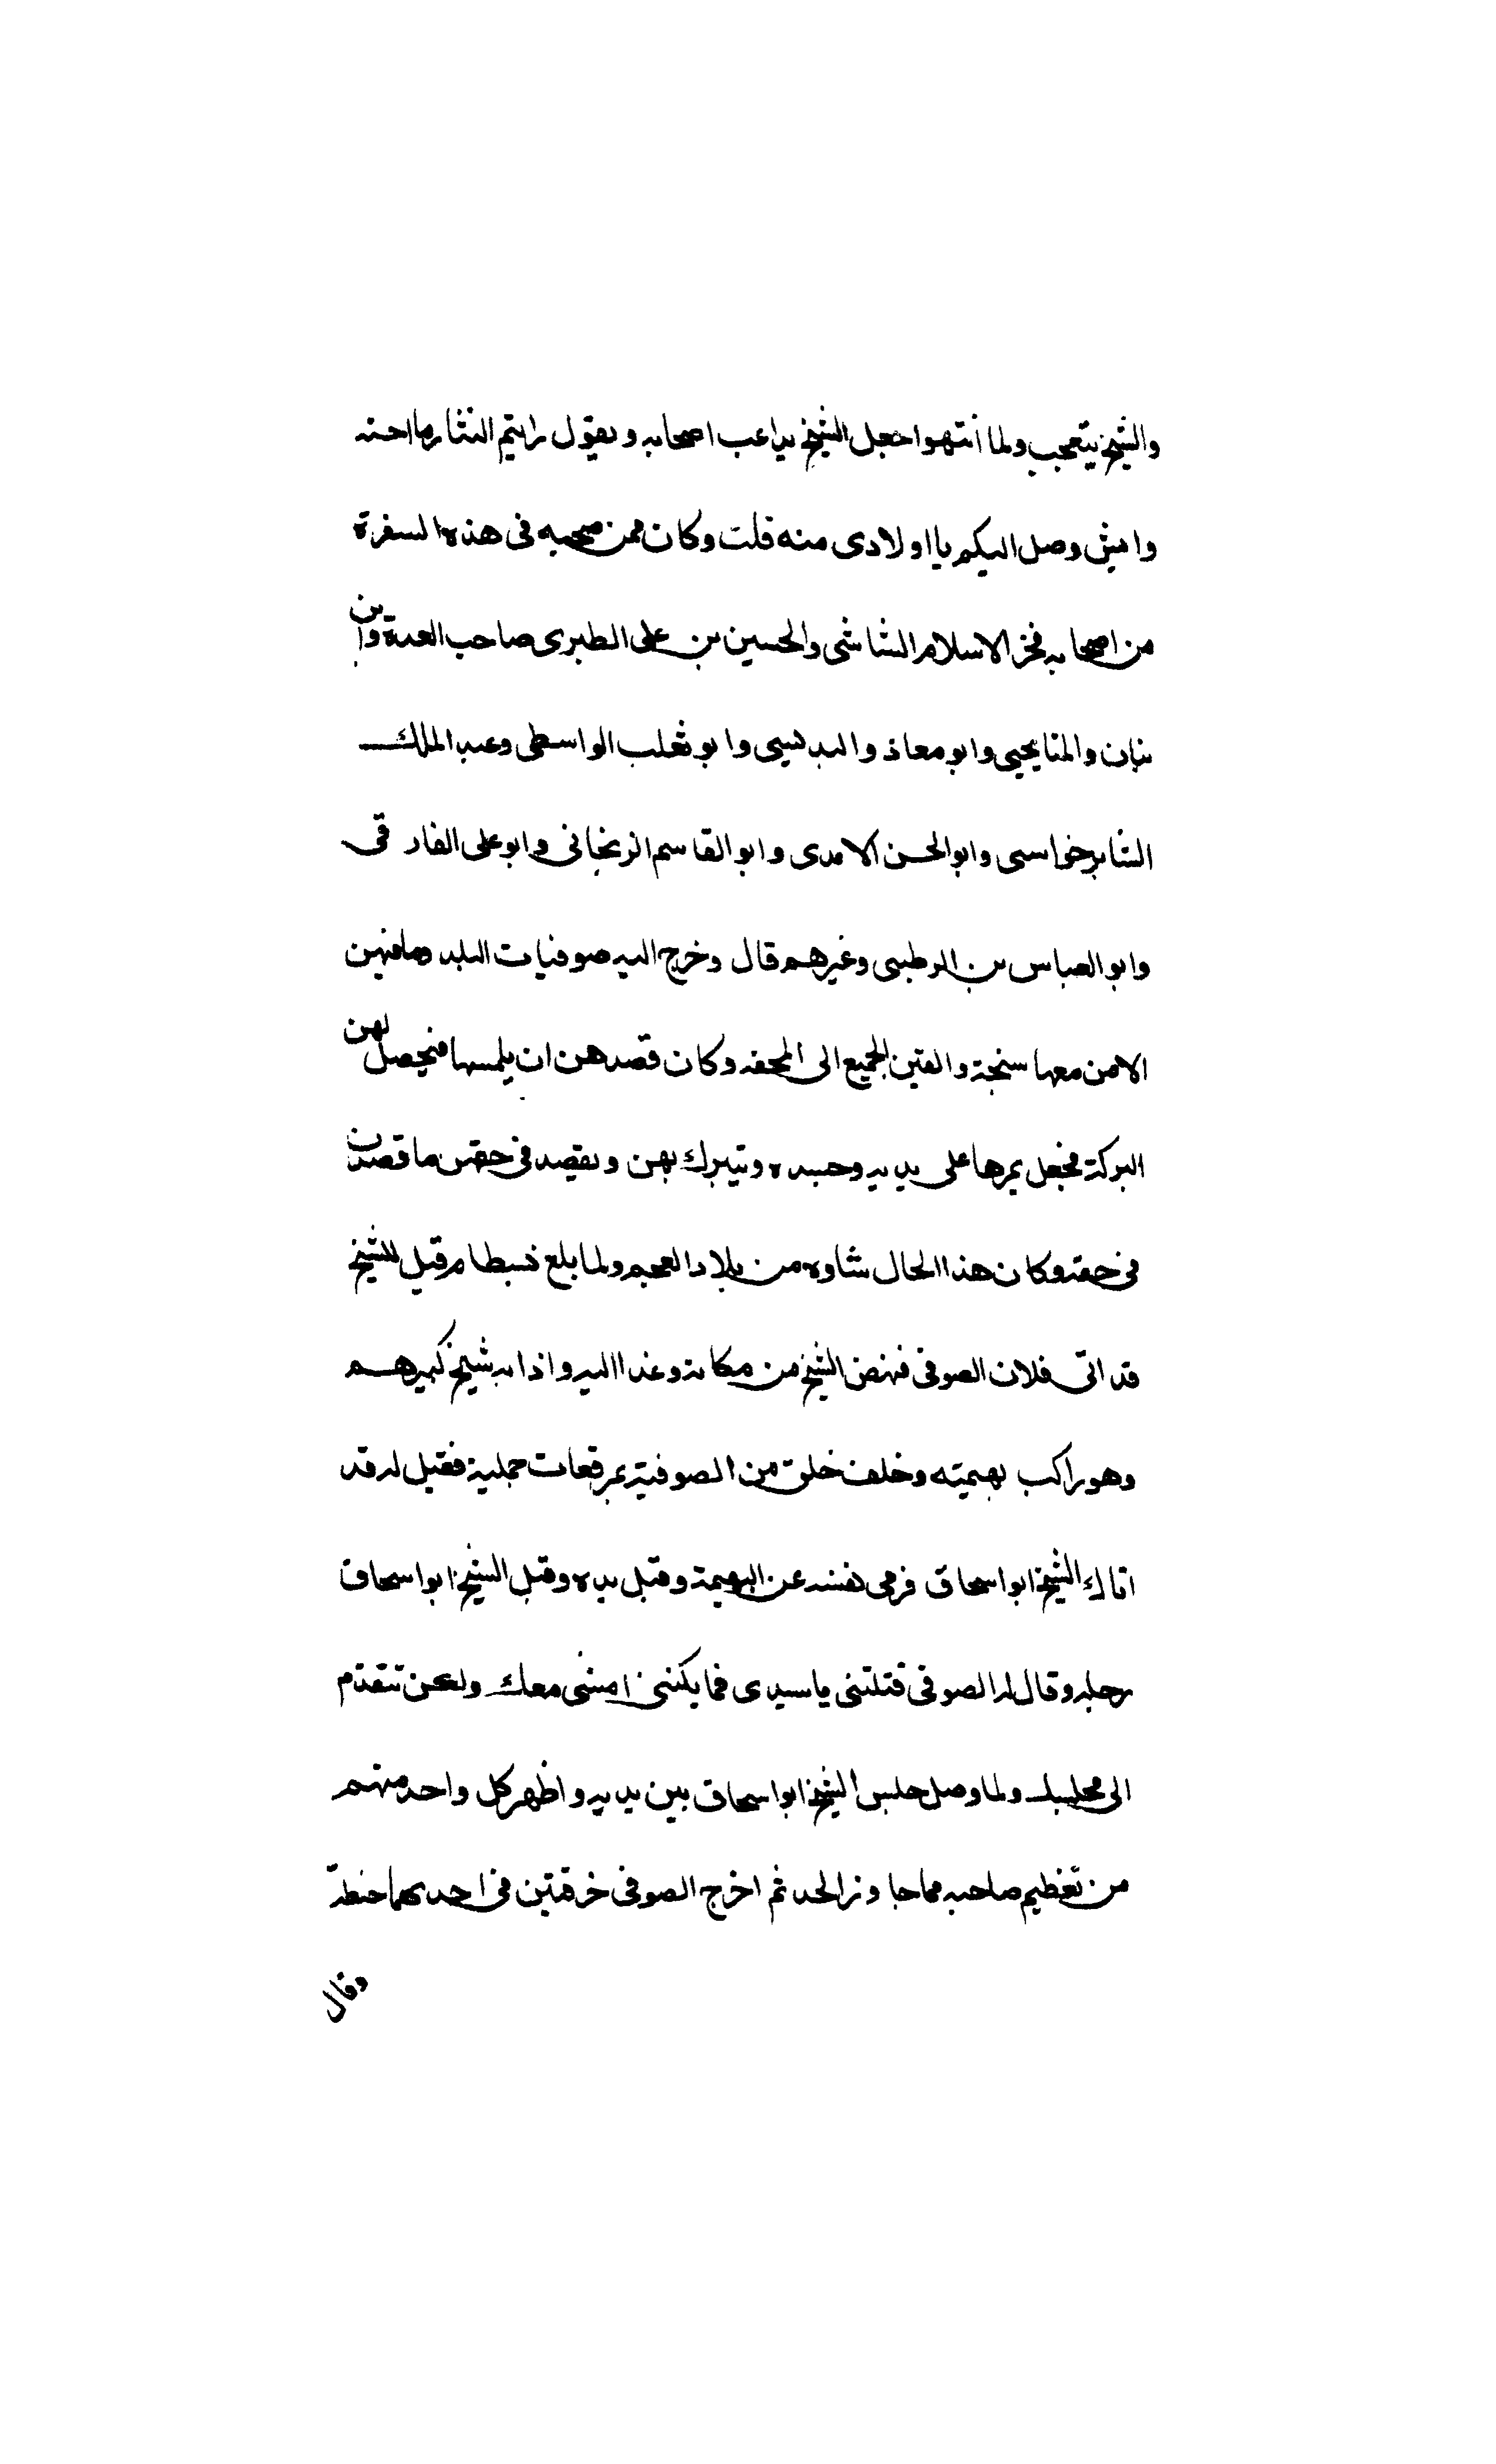 والشيخ يتعجب ولما انتهوا جعل الشيخ يداعب اصحابه ويقول رايتم النثار ما احسنه
وايش وصل اليكم يا اولادى منه قلت وكان ممن صحبه فى هذه السفرة
من اصحابه فخر الاسلام الشاشى والحسين بن على الطبرى صاحب العدة وابن
بنان والمنايحيى وابو معاذ والبدليسى وابو ثعلب الواسطى وعبد الملك
الشابرخواسى وابو الحسن الامدى وابو القاسم الزنجانى وابو على الفارقى
وابو العباس بن الرطبى وغيرهم قال وخرج اليه صوفيات البلد وما منهن
الا من معها سبحة والقين الجميع الى المحفه وكان قصدهن ان يلمسها فيحصل لهن
البركة فجعل يمرها على يديه وجسده ويتبرك بهن ويقصد فى حقهن ما قصدن
فى حقه وكان هذا الحال شاوه من بلاد العجم ولما بلغ بسطام قيل للشيخ
قد اتى فلان الصوفى فنهض الشيخ من مكانه وغدا اليه واذا به شيخ كبير هم
وهو راكب بهيمته وخلفه خلق من الصوفية بمرقعات جميلة فقيل له قد
اتاك الشيخ ابو اسحاق فرمى نفسه عن البهيمة وقبل يده وقبل الشيخ ابو اسحاق
رجله وقال له الصوفى قتلتنى يا سيدى فما يمكننى امشى معك ولكن تتقدم
الى مجلسك ولما وصل جلس الشيخ ابو اسحاق بين يديه واظهر كل واحد منهم
من تعظيم صاحبه مما جاوز الحد ثم اخرج الصوفى خرقتين فى احدىهما حنطة
وقال